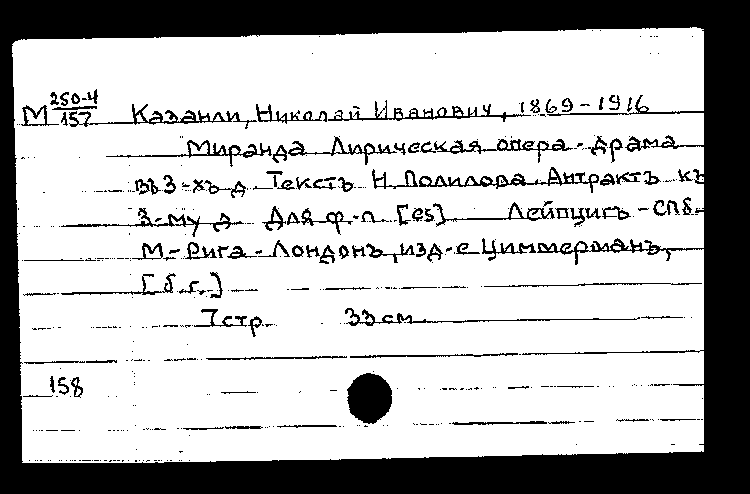 М 250-4/157 Казанли, Николай Иванович, 1869-1916
Миранда Лирическая опера-драма
въ 3-хъ д. Текстъ Н. Полилова. Антрактъ къ
3-му д. Для ф.-п. [es] Лейпцигъ-СПб.-
М.-Рига-Лондонъ, изд-е Циммерманъ,
[б.г.]
7 стр. 33 см.
158